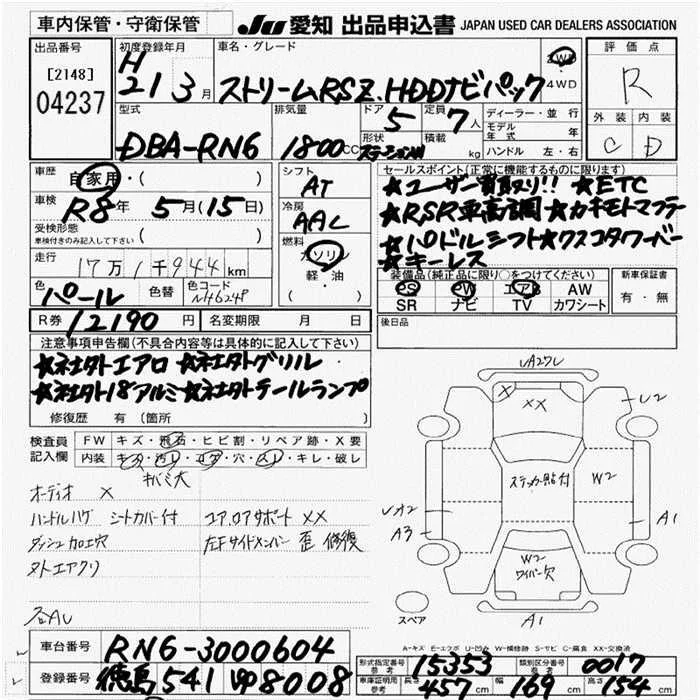 車内保管・守衛保管 JU 愛知 出品申込書 JAPAN USED CAR DEALERS ASSOCIATION
出品番号 初度登録年月 車名・グレード 評価点
[2148] 04237 H 21 3月 ストリームRSZ.HDDナビパック 2WD 4WD R
型式 排気量 ドア 5 定員 7人 ディーラー・並行 外装 内装
モデル年式 年
DBA-RN6 1800CC 形状 積載 kg ハンドル 左・右 C D
車歴 自家用・( ) シフト AT セールスポイント(正常に機能するものに限ります)
車検 R8年 5月(15日) 冷房 AAC ★ユーザー買取り!! ★ETC
受検形態 車検付きのみ記入して下さい ( ) 燃料 ガソリン ★RSR車高調★カキモトマフラー
走行 17万1千944km 軽・油 ★パドルシフト★クスコタワーバー
★キーレス
色 パール 色替 色コード NH624P ( ) 装備品(純正品に限り○をつけてください) 新車保証書
PS PW エアB AW 有・無
SR ナビ TV カワシート
R券 12190円 名変期限 月 日 後日品
注意事項申告欄(不具合内容等は具体的に記入して下さい)
★社外エアロ ★社外グリル
★社外18アルミ★社外テールランプ
修復歴 有 (箇所 )
検査員記入欄 FW キズ・飛石・ヒビ割・リペア跡・X要
内装 キズ・汚レ・コゲ・穴・スレ・キレ・破レ
キバミ大
オーディオ X
ハンドルハゲ シートカバー付 コア.ロアサポート XX
ダッシュ加工穴 左Fサイドメンバー 歪 修復
ヌトエアクリ
UA27U
X XX U2
ステッカー貼付 W2
UA2
A3 A1
W2
ワイパー穴
スペア A1
A-キズ E-エクボ U-凹み W-補修跡 S-サビ C-腐食 XX-交換済
車台番号 RN6-3000604 形式指定番号 参考 15353 類別区分番号 参考 0017
登録番号 徳島 541 ゆ8008 車庫証明用 参考 長さ 457cm 幅 169cm 高さ 154cm